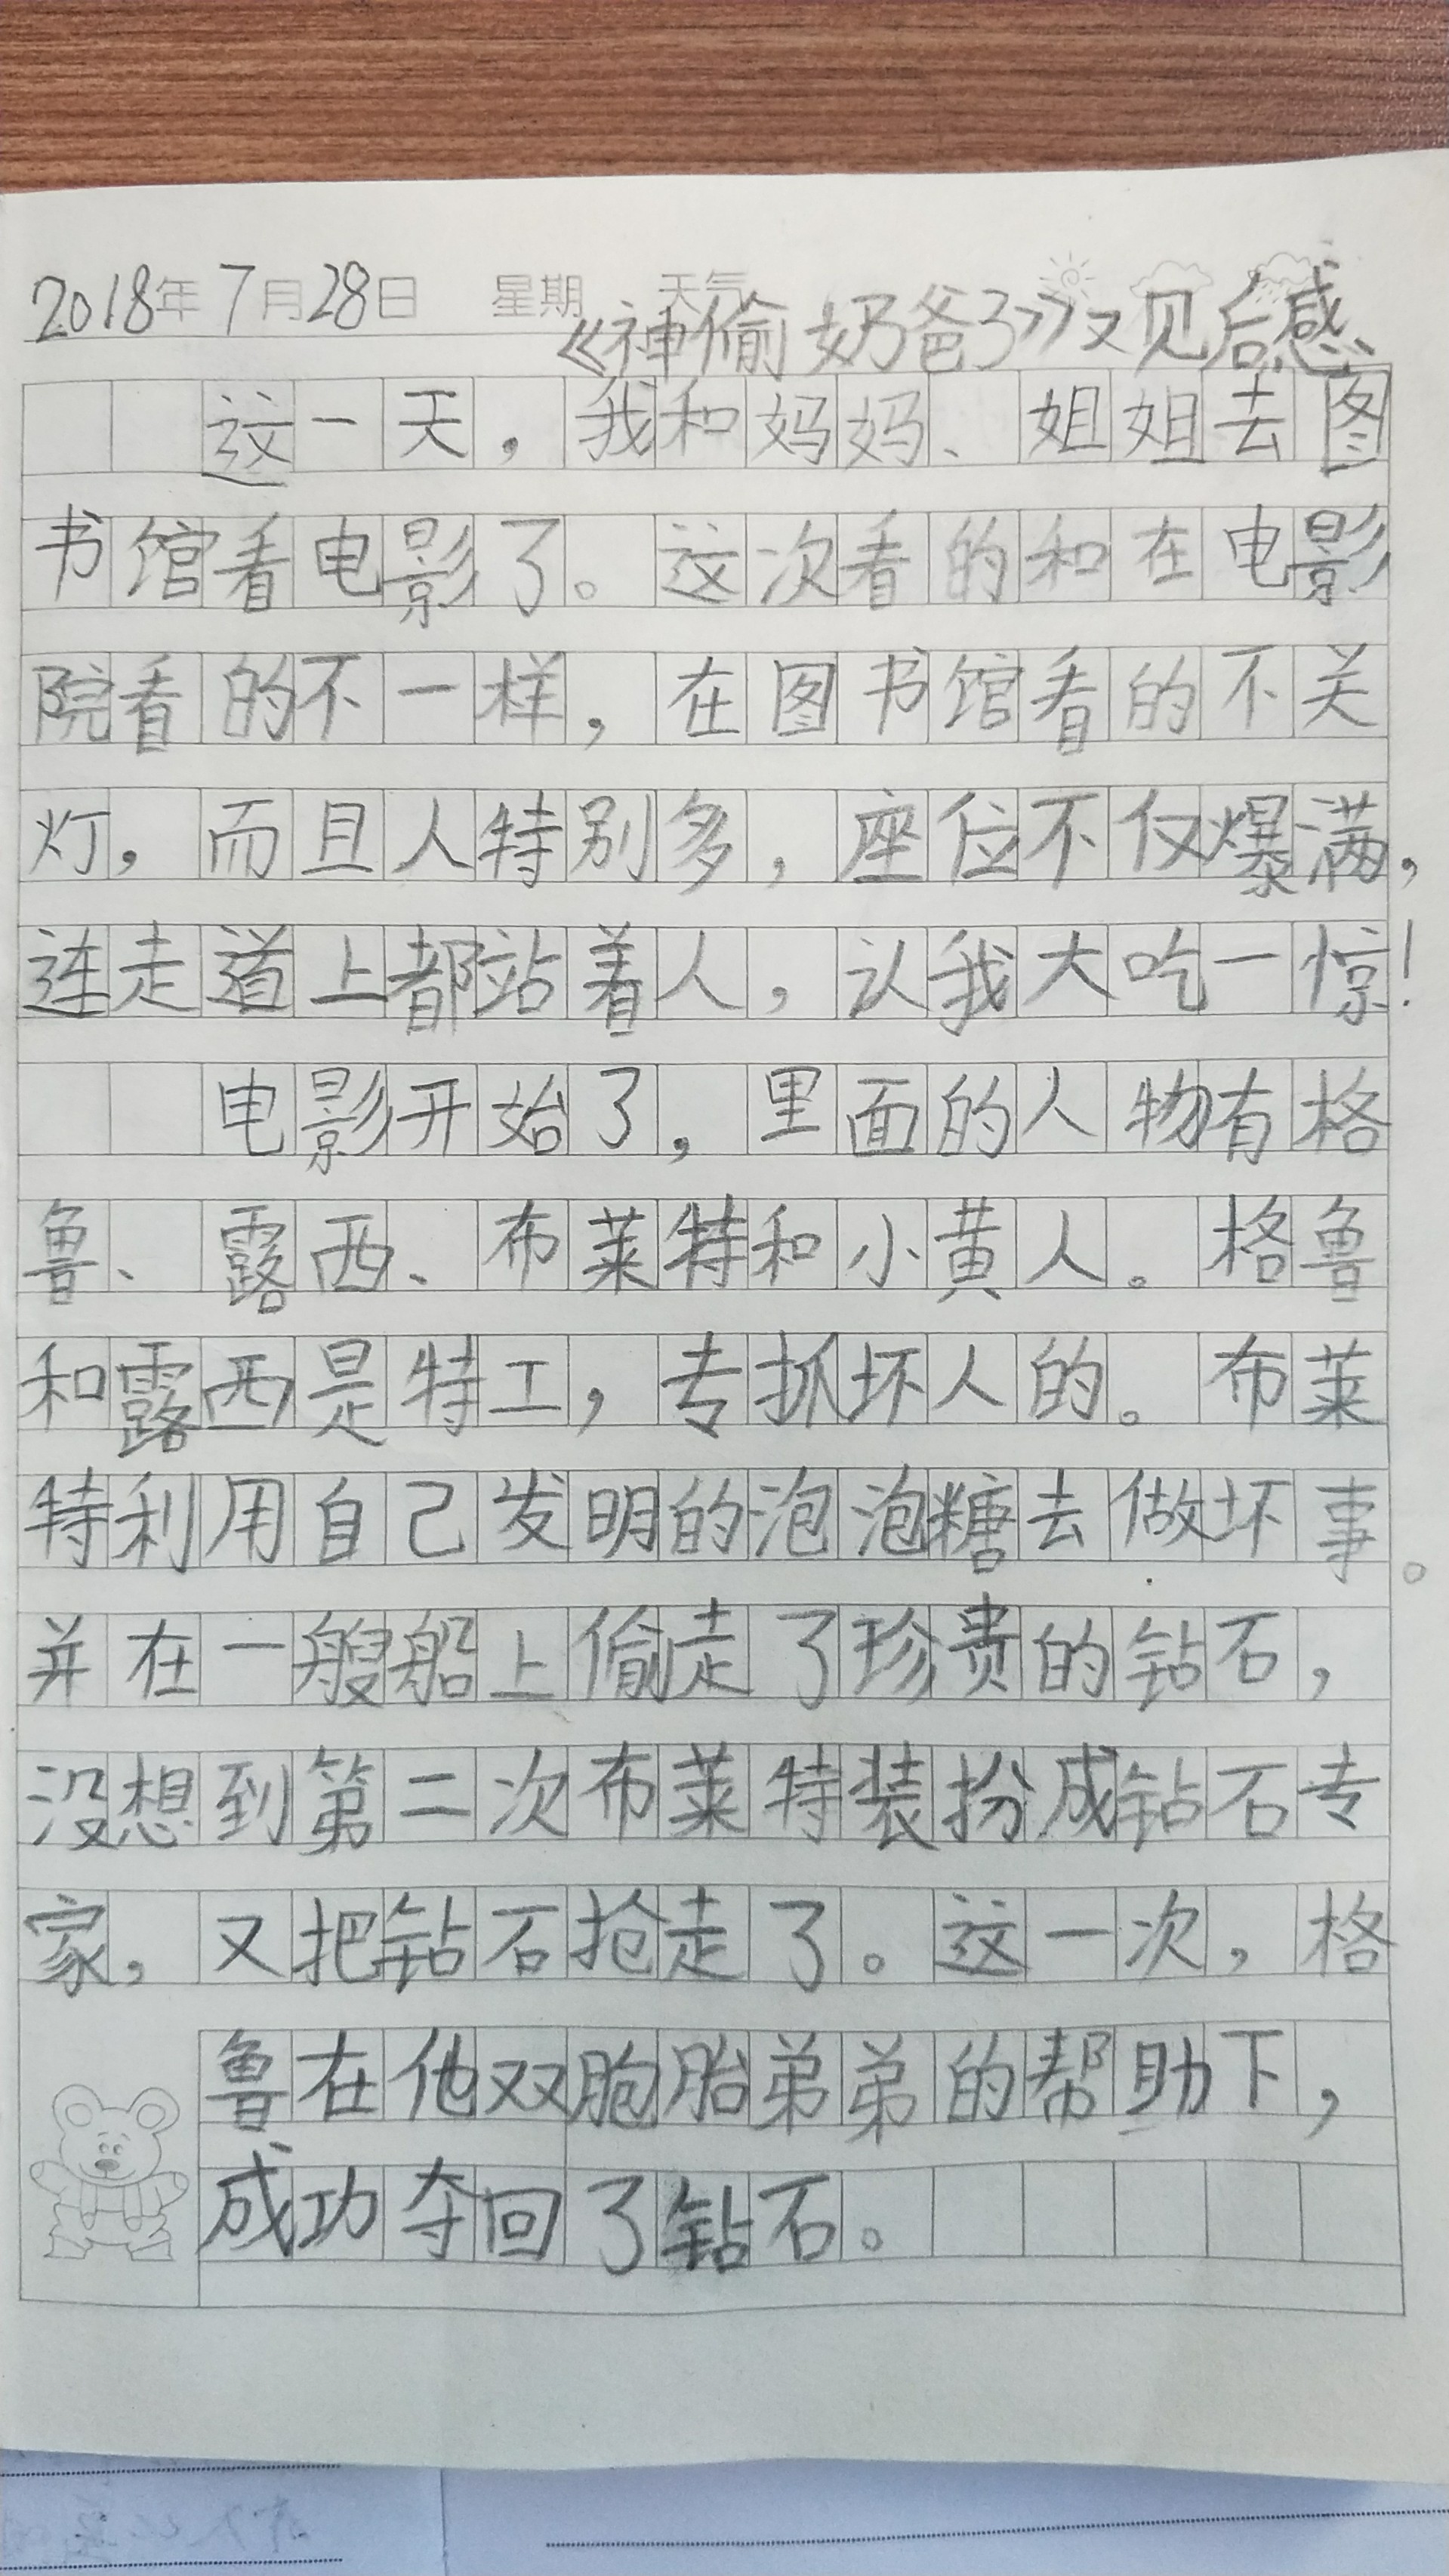 2018年7月28日 星期 天气
《神偷奶爸3》又见后感
这一天，我和妈妈、姐姐去图
书馆看电影了。这次看的和在电影
院看的不一样，在图书馆看的不关
灯，而且人特别多，座位不仅爆满，
连走道上都站着人，认我大吃一惊！
电影开始了，里面的人物有格
鲁、露西、布莱特和小黄人。格鲁
和露西是特工，专抓坏人的。布莱
特利用自己发明的泡泡糖去做坏事。
并在一艘船上偷走了珍贵的钻石，
没想到第二次布莱特装扮成钻石专
家，又把钻石抢走了。这一次，格
鲁在他双胞胎弟弟的帮助下，
成功夺回了钻石。